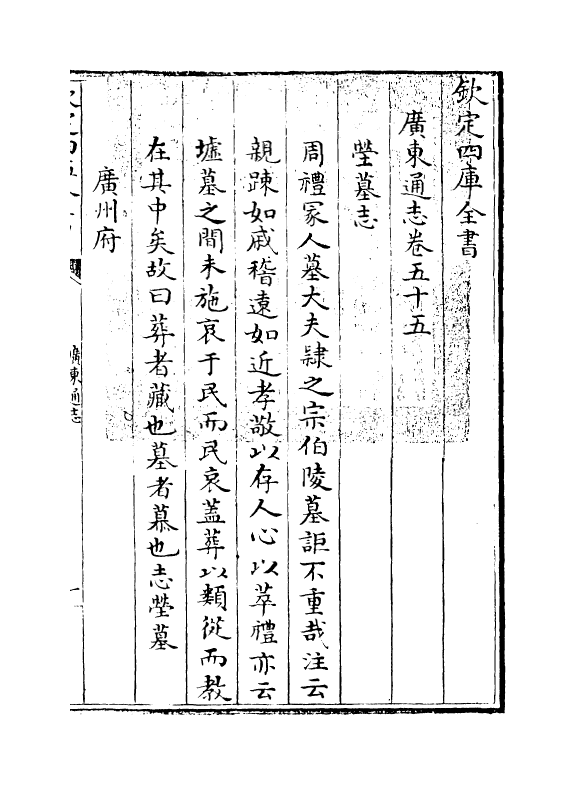 欽定四庫全書
廣東通志卷五十五
塋墓志
周禮冡人墓大夫隷之宗伯陵墓詎不重哉注云
親踈如戚稽逺如近孝敬以存人心以萃禮亦云
墟墓之間未施哀于民而民哀蓋葬以類從而教
在其中矣故曰葬者藏也墓者慕也志塋墓
廣州府
廣東通志
一